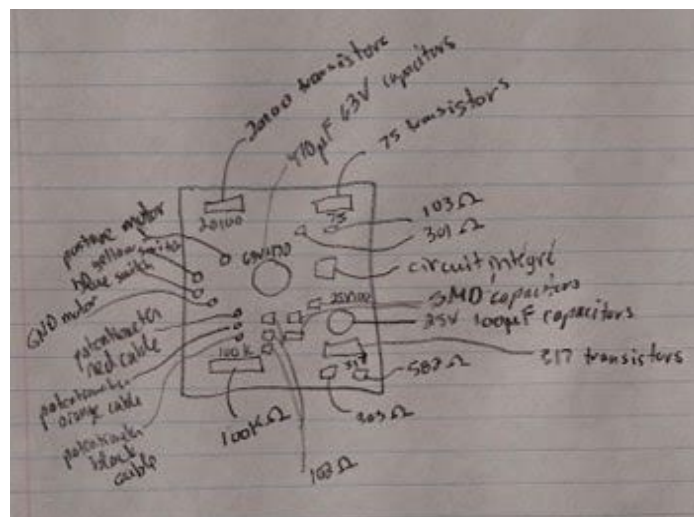 20100 transistors
470µF 63V capacitors
75 transistors
20100
75
103Ω
301Ω
63V470
circuit intégré
postave motor
yellow switch
blue switch
GND motor
25V100
SMD capacitors
25V 100µF capacitors
potentiometer
red cable
potentiometer
orange cable
potentiometer
black
cable
100K
317
317 transistors
582Ω
303Ω
100KΩ
103Ω